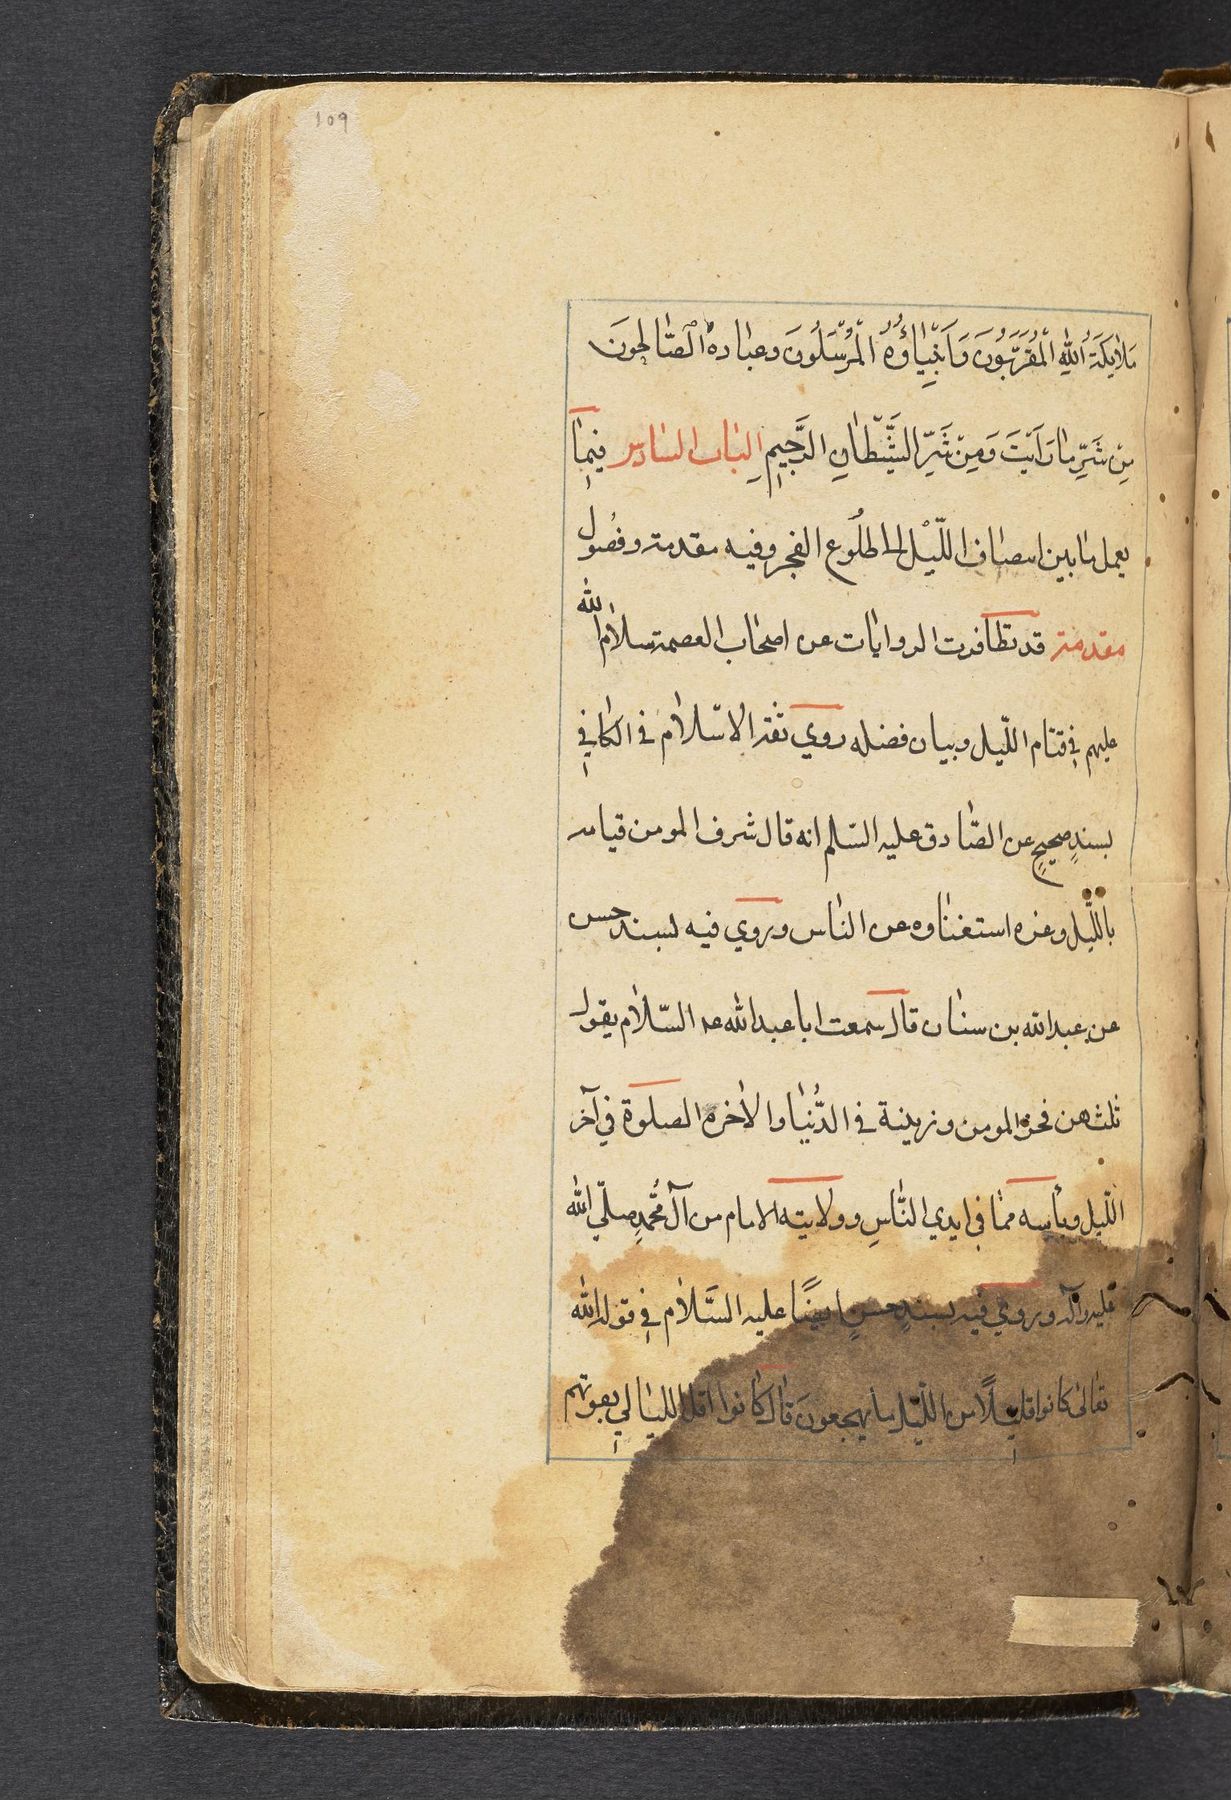 109
مَلائِكَةُ اللهِ الْمُقَرَّبُونَ وَاَنْبِيٰاؤُهُ الْمُرْسَلُونَ وعبٰاده الصّٰالحونَ
مِنْ شَرِّ مٰا رَاَيْتَ وَمِنْ شَرِّ الشَّيْطٰانِ الرَّجيمِ الباب السادس فيمٰا
يعمل مٰا بين انتصٰاف اللّيْل الى طلُوع الفجر وفيه مقدمة وفصُول
مقدمة قد تظافرت الروايٰات عن اصحٰاب العصمة سلام الله
عليهم في قيام اللّيل وبيان فضله روي ثقة الاسْلام في الكافي
بسندٍ صحيحٍ عن الصّٰادق عليه السّلم انه قال شرف المومن قيامه
باللّيل وعزه استغنٰاوه عن النٰاس وروي فيه بسند حسن
عن عبد الله بن سنٰان قال سمعت ابا عبد الله عليه السّلام يقول
ثلث هن فخر المومن وزينة في الدُّنيٰا والاخره الصلوة في آخر
اللّيل ويأسه ممّا في ايدي النّٰاسِ وولايته الامام من آل مُحمّدٍ صلّي الله
عليه وآله وروي فيه بسندٍ حسنٍ ايضًا عليه السَّلام في قوله الله
تعٰالى كانوا قليلًا من اللّيل مٰا يهجعون قال كٰانوا اقل الليٰالي يفوتهم